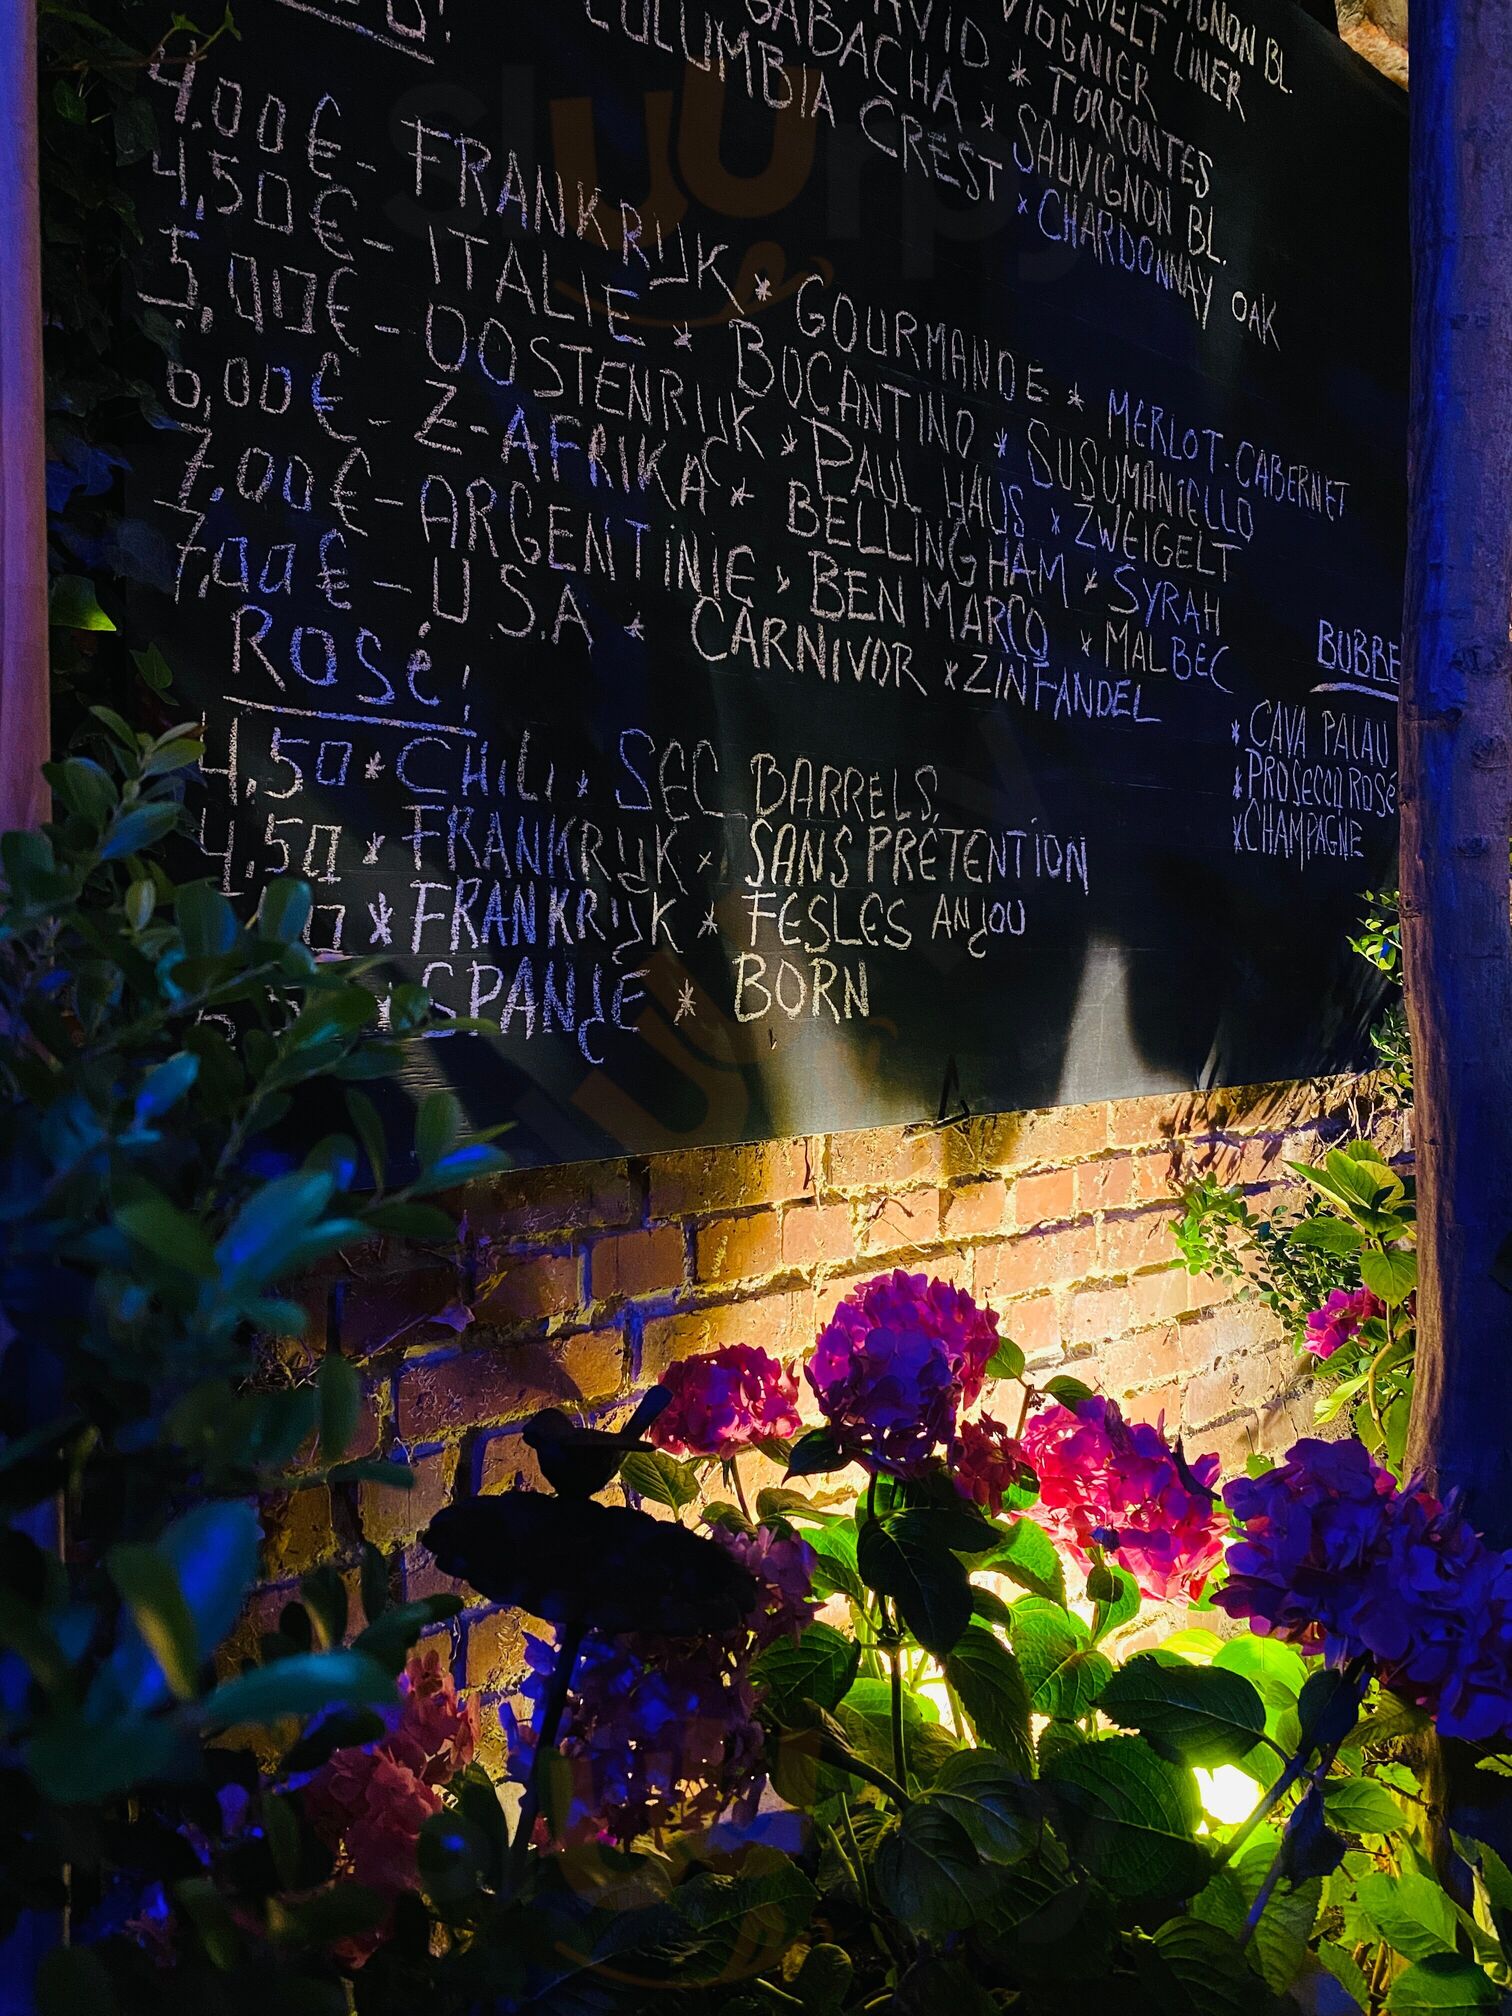 VIGNON BL.
VELT LINER
VIOGNIER
DAVID * TORRONTES
GABACHA * SAUVIGNON BL.
COLUMBIA CREST * CHARDONNAY OAK
4,00€ - FRANKRIJK * GOURMANDE * MERLOT-CABERNET
4,50€ - ITALIE * BOCANTINO * SUSUMANIELLO
5,00€ - OOSTENRIJK * PAUL HAUS * ZWEIGELT
6,00€ - Z-AFRIKA * BELLINGHAM * SYRAH
7,00€ - ARGENTINIE * BEN MARCO * MALBEC
7,00€ - U.S.A * CARNIVOR * ZINFANDEL
ROSé!
4,50 * CHILI * SEC BARRELS
4,50 * FRANKRIJK * SANS PRETENTION
* FRANKRIJK * FESLES ANJOU
* SPANJE * BORN
BUBBE
* CAVA PALAU
* PROSECCO ROSé
* CHAMPAGNE
sluurpy